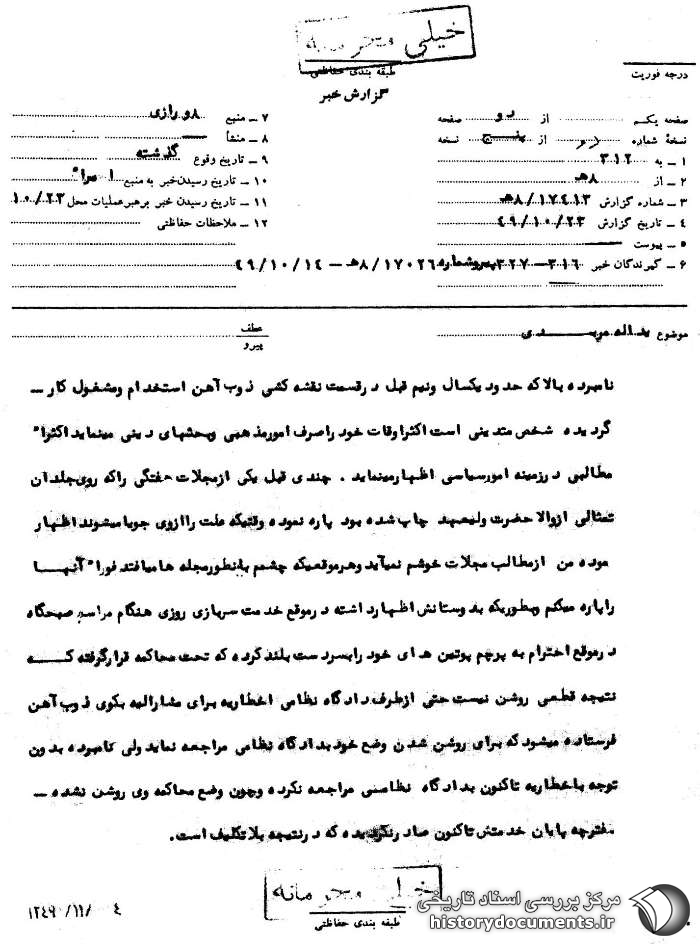 خیلی محرمانه
طبقه بندی حفاظتی
گزارش خبر
درجه فوریت
صفحه یکم از دو صفحه
نسخهٔ شماره از پنج نسخه
۱ – به ۳۱۲
۲ – از ۸هـ
۳ – شماره گزارش ۸/۱۷۴۱۳هـ
۴ – تاریخ گزارش ۴۹/۱۰/۲۳
۵ – پیوست
۶ – گیرندگان خبر ۳۱۶ – ۳۲۷ پیروشماره ۸/۱۷۰۲۶هـ – ۴۹/۱۰/۱۴
۷ – منبع
۸ – منشأ
۹ – تاریخ وقوع گذشته
۱۰ – تاریخ رسیدن خبر به منبع
۱۱ – تاریخ رسیدن خبر برهبرعملیات محل ۱۰/۲۳
۱۲ – ملاحظات حفاظتی
موضوع یداله
عطف
پیرو
نامبرده بالاکه حدود یکسال ونیم قبل درقسمت نقشه کشی ذوب آهن استخدام ومشغول کار –
گردیده شخص متدینی است اکثراوقات خود راصرف امورمذهبی وبحثهای دینی مینماید اکثراً
مطالبی درزمینه امورسیاسی اظهارمینماید . چندی قبل یکی ازمجلات هفتگی راکه روی جلدآن
تمثالی ازوالا حضرت ولیعهد چاپ شده بود پاره نموده وقتیکه علت راازوی جویامیشونداظهار
موده من ازمطالب مجلات خوشم نمیآید وهرموقعیکه چشمم باینطورمجله هامیافتد فوراً آنهـا
راپاره میکنم وبطوریکه بدوستانش اظهارداشته درموقع خدمت سربازی روزی هنگام مراسم صبحگاه
درموقع احترام به پرچم پوتین های خود رابسردست بلندکرده که تحت محاکمه قرارگرفته کــه
نتیجه قطعی روشن نیست حتی ازطرف دادگاه نظامی اخطاریه برای مشارالیه بکوی ذوب آهن
فرستاده میشود که برای روشن شدن وضع خودبدادگاه نظامی مراجعه نماید ولی نامبرده بدون
توجه باخطاریه تاکنون بدادگاه نظامی مراجعه نکرده وچون وضع محاکمه وی روشن نشده –
دفترچه پایان خدمتش تاکنون صادرنگردیده که درنتیجه بلاتکلیف است.
خیلی محرمانه
طبقه بندی حفاظتی
۴ /۱۱/ ۱۳۴۹
مرکز بررسی اسناد تاریخی
historydocuments.ir